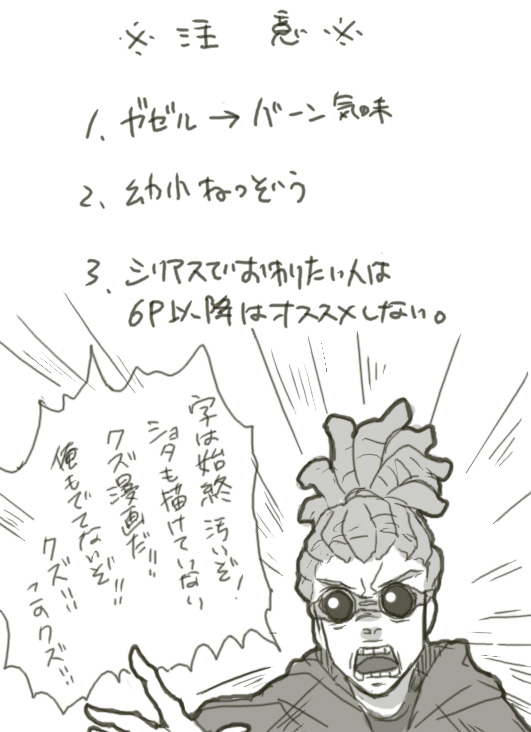 ※ 注 意 ※
1. ガゼル→バーン気味
2. 幼少ねつぞう
3. シリアスでおわりたい人は
6P以降はオススメしない。
字は始終汚いぞ!
ショタも描けていない
クズ漫画だ!!
俺もでてないぞ!!
クズ!! このクズ!!